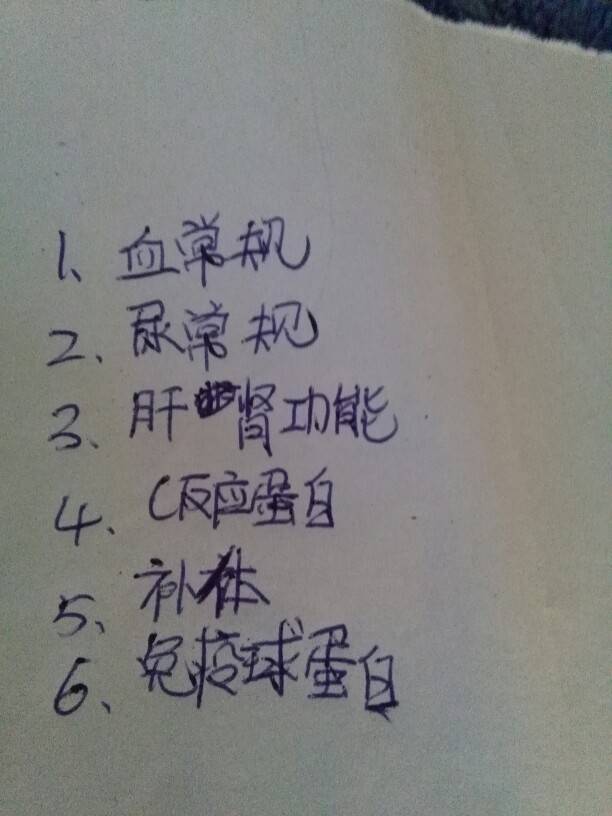 1、血常规
2、尿常规
3、肝肾功能
4、C反应蛋白
5、补体
6、免疫球蛋白